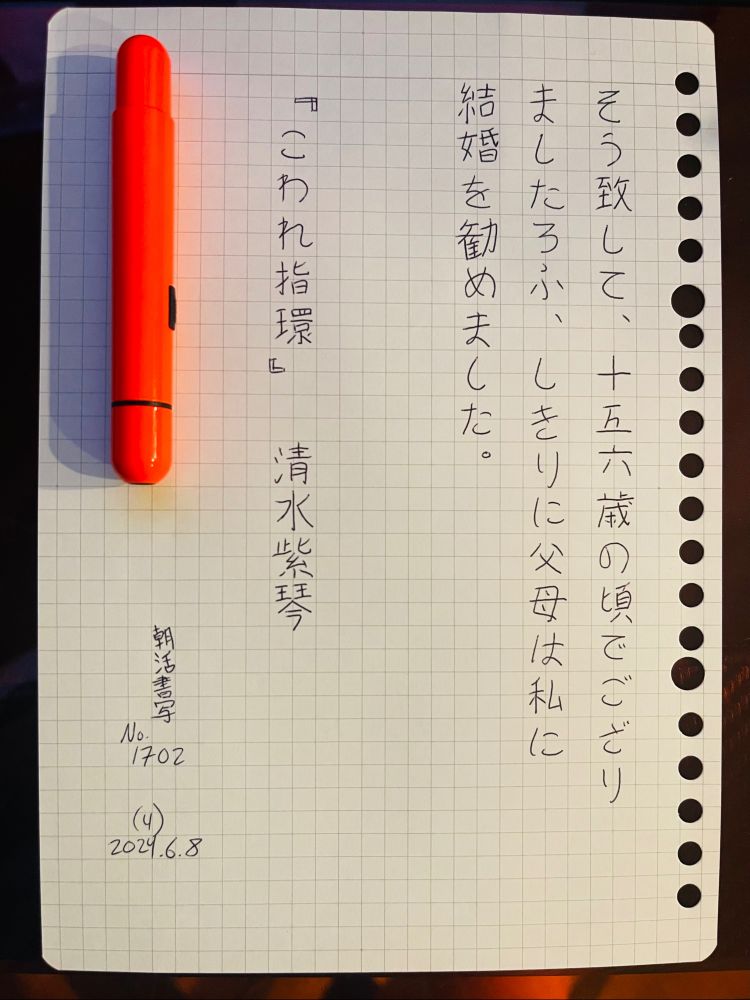 そう致して、十五六歳の頃でござり
ましたろふ、しきりに父母は私に
結婚を勧めました。
『こわれ指環』 清水紫琴
朝活書写
No.
1702
(4)
2024.6.8